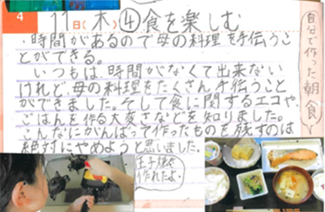 4
11日(木)④食を楽しむ
・時間があるので母の料理を手伝うこ
とができる。
いつもは、時間がなくて出来ない
けれど、母の料理をたくさん手伝うこと
ができました。そして食に関するエコや、
ごはんを作る大変さなどを知りました。
こんなにがんばって作ったものを残すのは
絶対にやめようと思いました。
自分で作った朝食
玉子焼き
作れたよ。